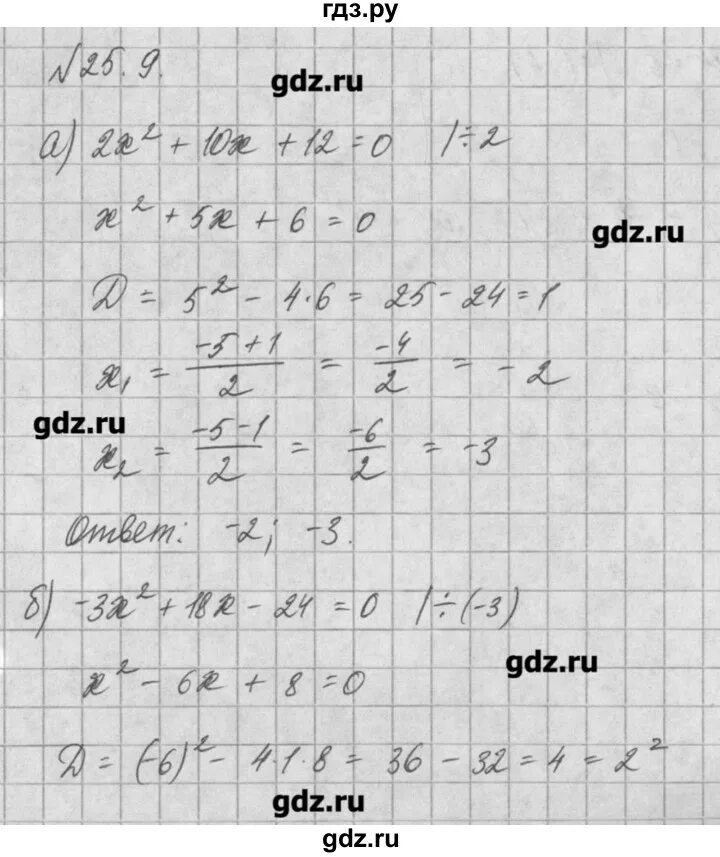 гдз.ру
№25.9.
gdz.ru
а) 2x² + 10x + 12 = 0 |÷2
x² + 5x + 6 = 0
gdz.ru
D = 5² - 4·6 = 25 - 24 = 1
x₁ = (-5+1)/2 = -4/2 = -2
gdz.ru
x₂ = (-5-1)/2 = -6/2 = -3
Ответ: -2; -3.
б) -3x² + 18x - 24 = 0 |÷(-3)
gdz.ru
x² - 6x + 8 = 0
D = (-6)² - 4·1·8 = 36 - 32 = 4 = 2²
gdz.ru
gdz.ru